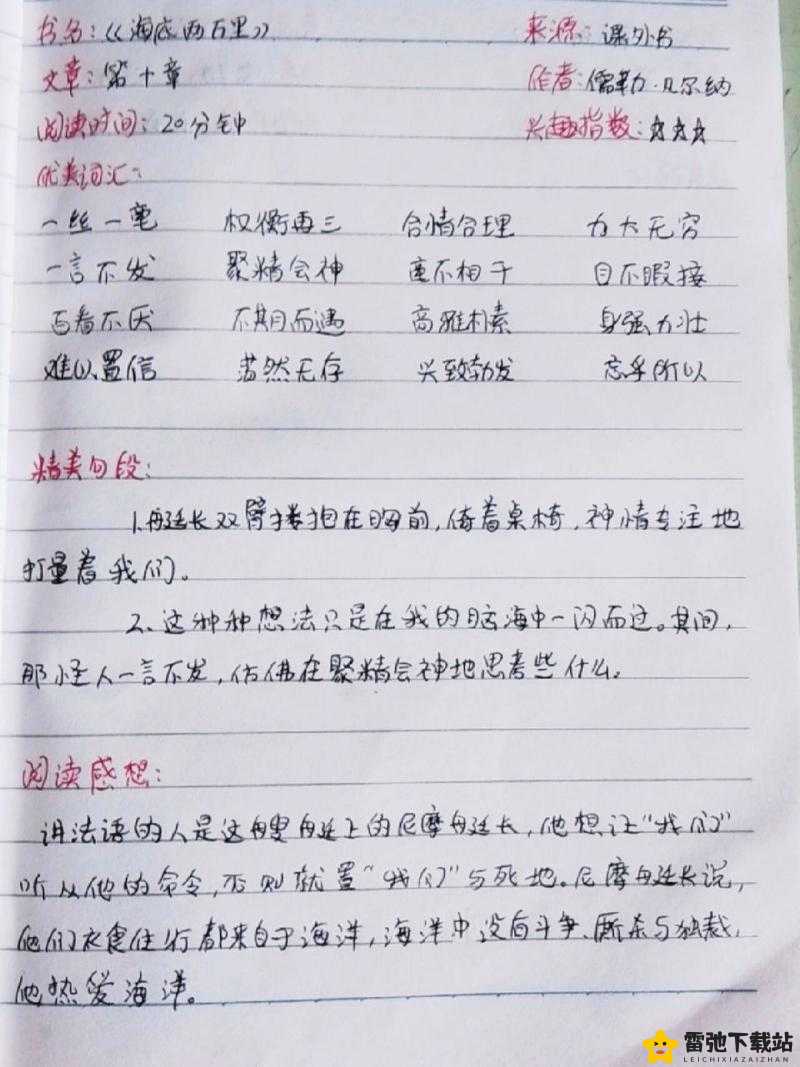 书名：《海底两万里》 来源：课外书
文章：第十章 作者：儒勒·凡尔纳
阅读时间：20分钟 兴趣指数：☆☆☆
优美词汇：
一丝一毫 权衡再三 合情合理 力大无穷
一言不发 聚精会神 毫不相干 目不暇接
百看不厌 不期而遇 高雅朴素 身强力壮
难以置信 荡然无存 兴致勃发 忘乎所以
精美句段：
1.舰长双臂搂抱在胸前，倚着桌椅，神情专注地
打量着我们。
2、这种种想法只是在我的脑海中一闪而过。其间，
那怪人一言不发，仿佛在聚精会神地思考些什么。
阅读感想：
讲法语的人是这艘舰上的尼摩舰长，他想让“我们”
听从他的命令，否则就置“我们”与死地。尼摩舰长说，
他们衣食住行都来自于海洋，海洋中没有斗争、厮杀与独裁，
他热爱海洋。
雷弛下载站
LEICHIXIAZAIZHAN